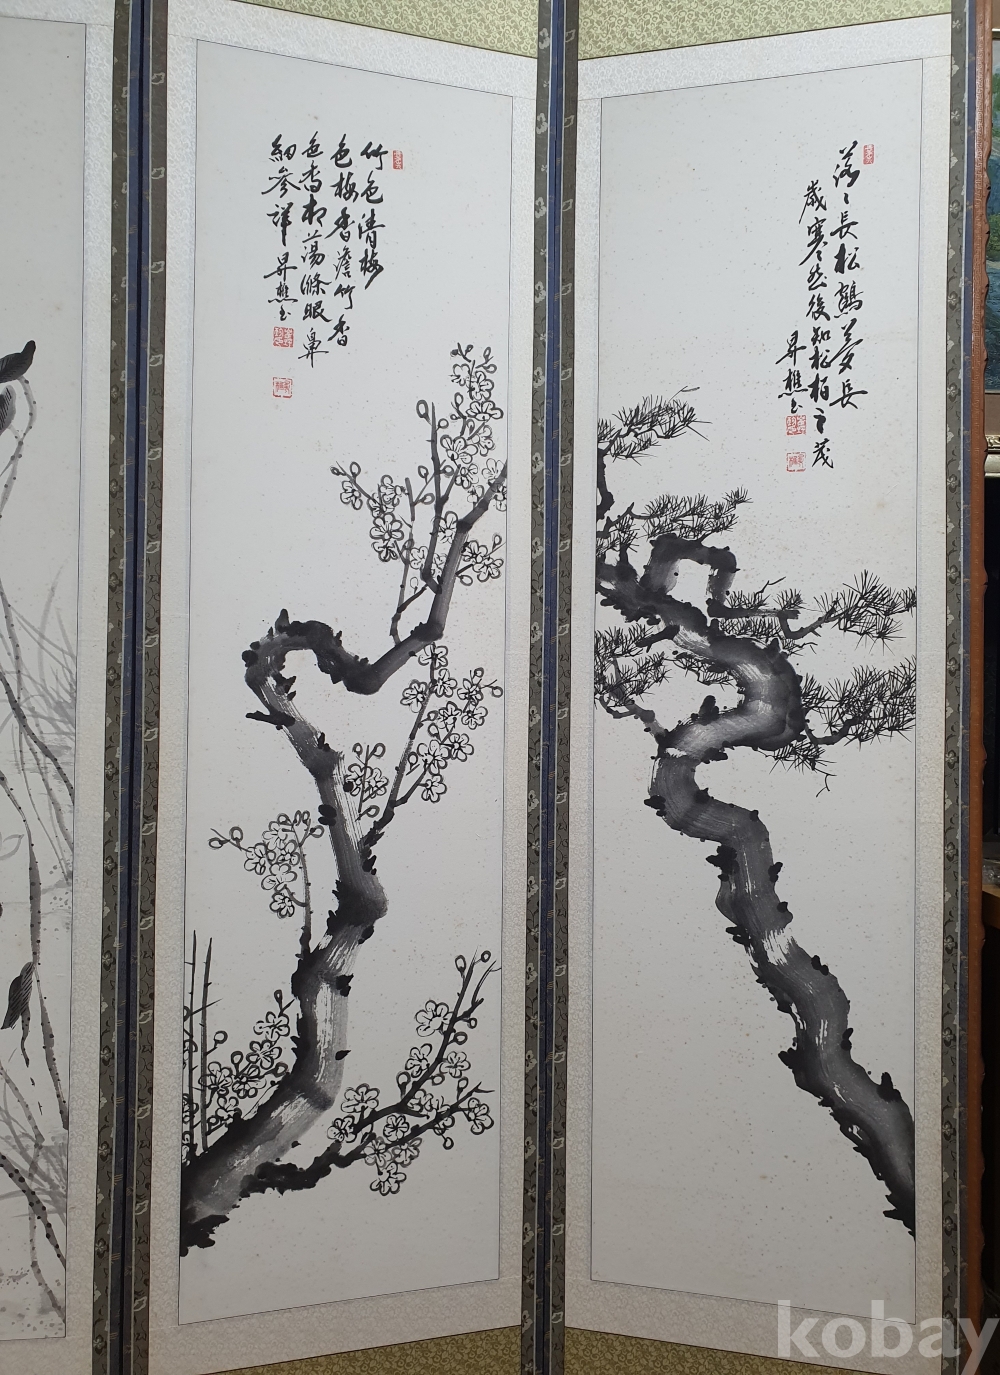 落々長松鶴夢長
歲寒然後知松柏之茂
昇樵
竹色清梅
色梅香澹竹香
色香相蕩滌眼鼻
細參詳 昇樵
kobay